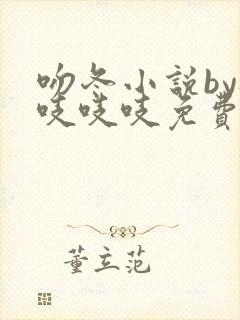 吻冬小説by
吱吱吱免費
董立范